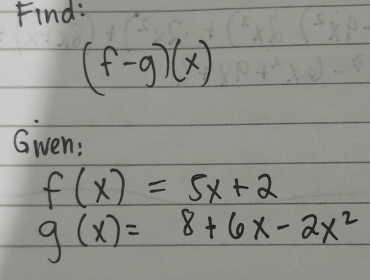 Find:
(f-g)(x)
Given:
f(x) = 5x+2
g(x)= 8+6x-2x²